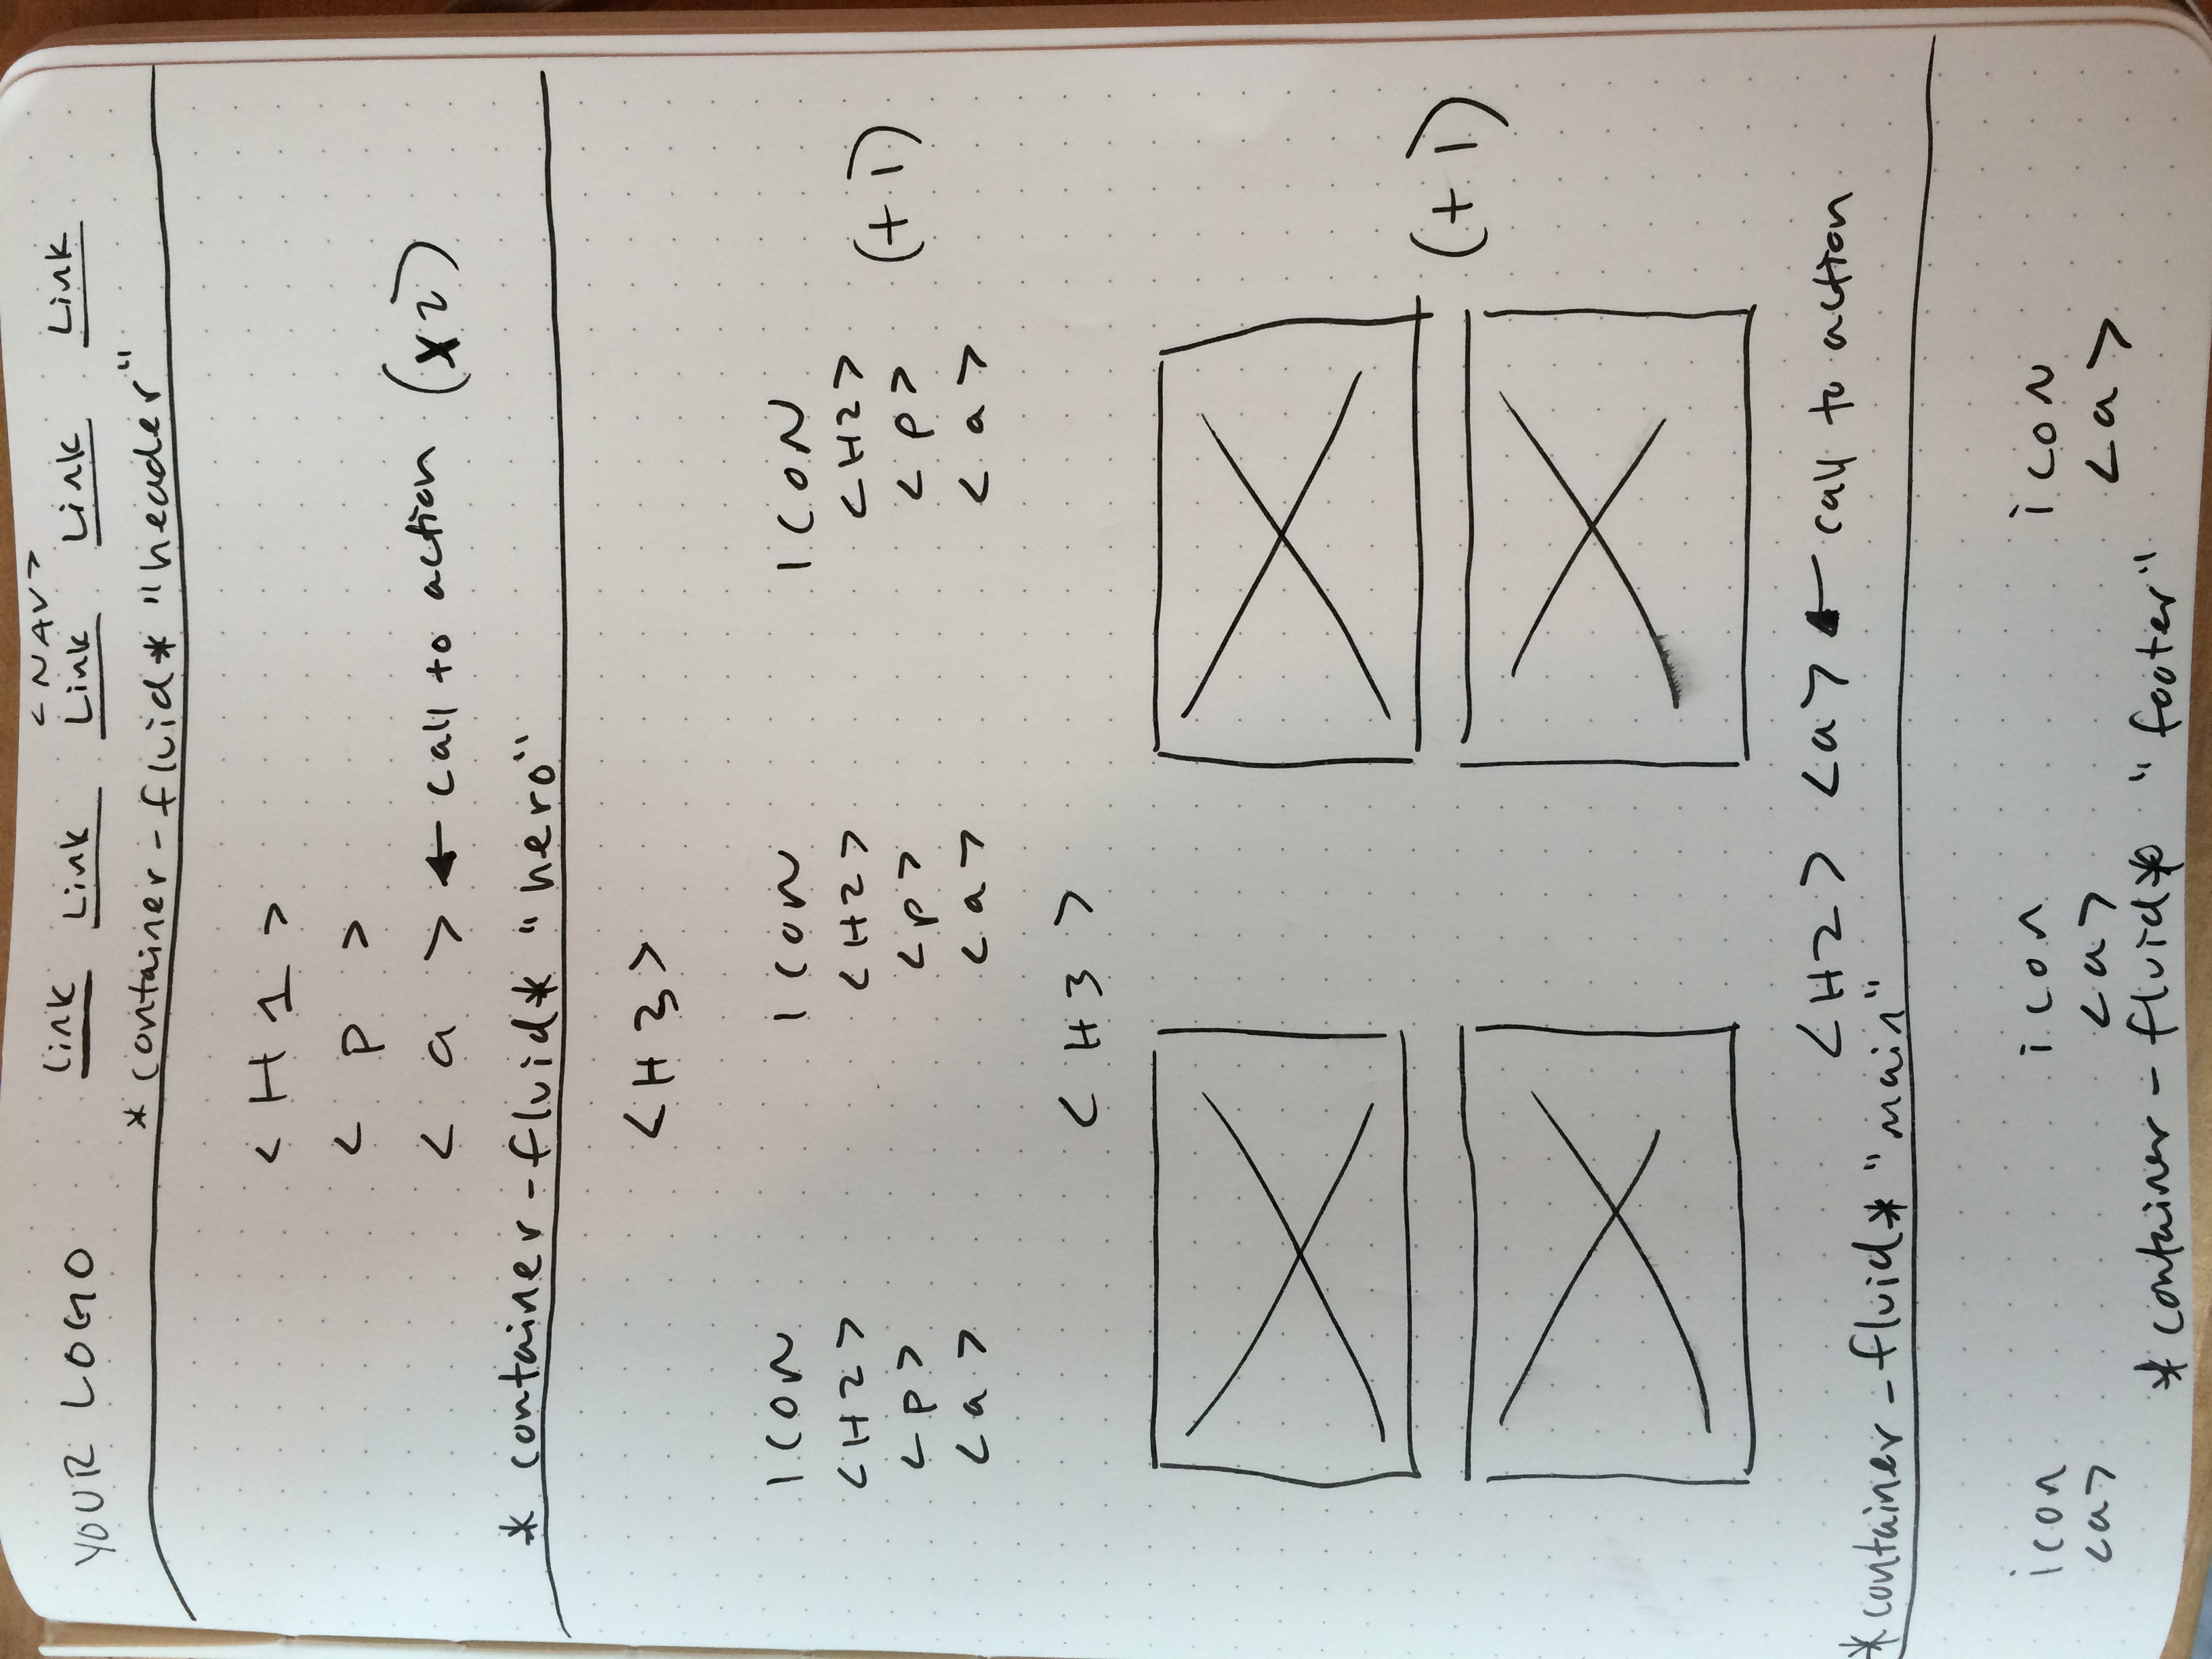 <NAV>
YOUR LOGO Link Link Link Link Link
* container-fluid* "header"
<H1>
<p>
<a> ← call to action (x2)
* container-fluid* "hero"
<H3>
ICON ICON ICON
<H2> <H2> <H2>
<p> <p> <p> (+1)
<a> <a> <a>
<H3>
(+1)
<H2> <a> ← call to action
*container-fluid* "main"
icon icon icon
<a> <a> <a>
*container-fluid* "footer"